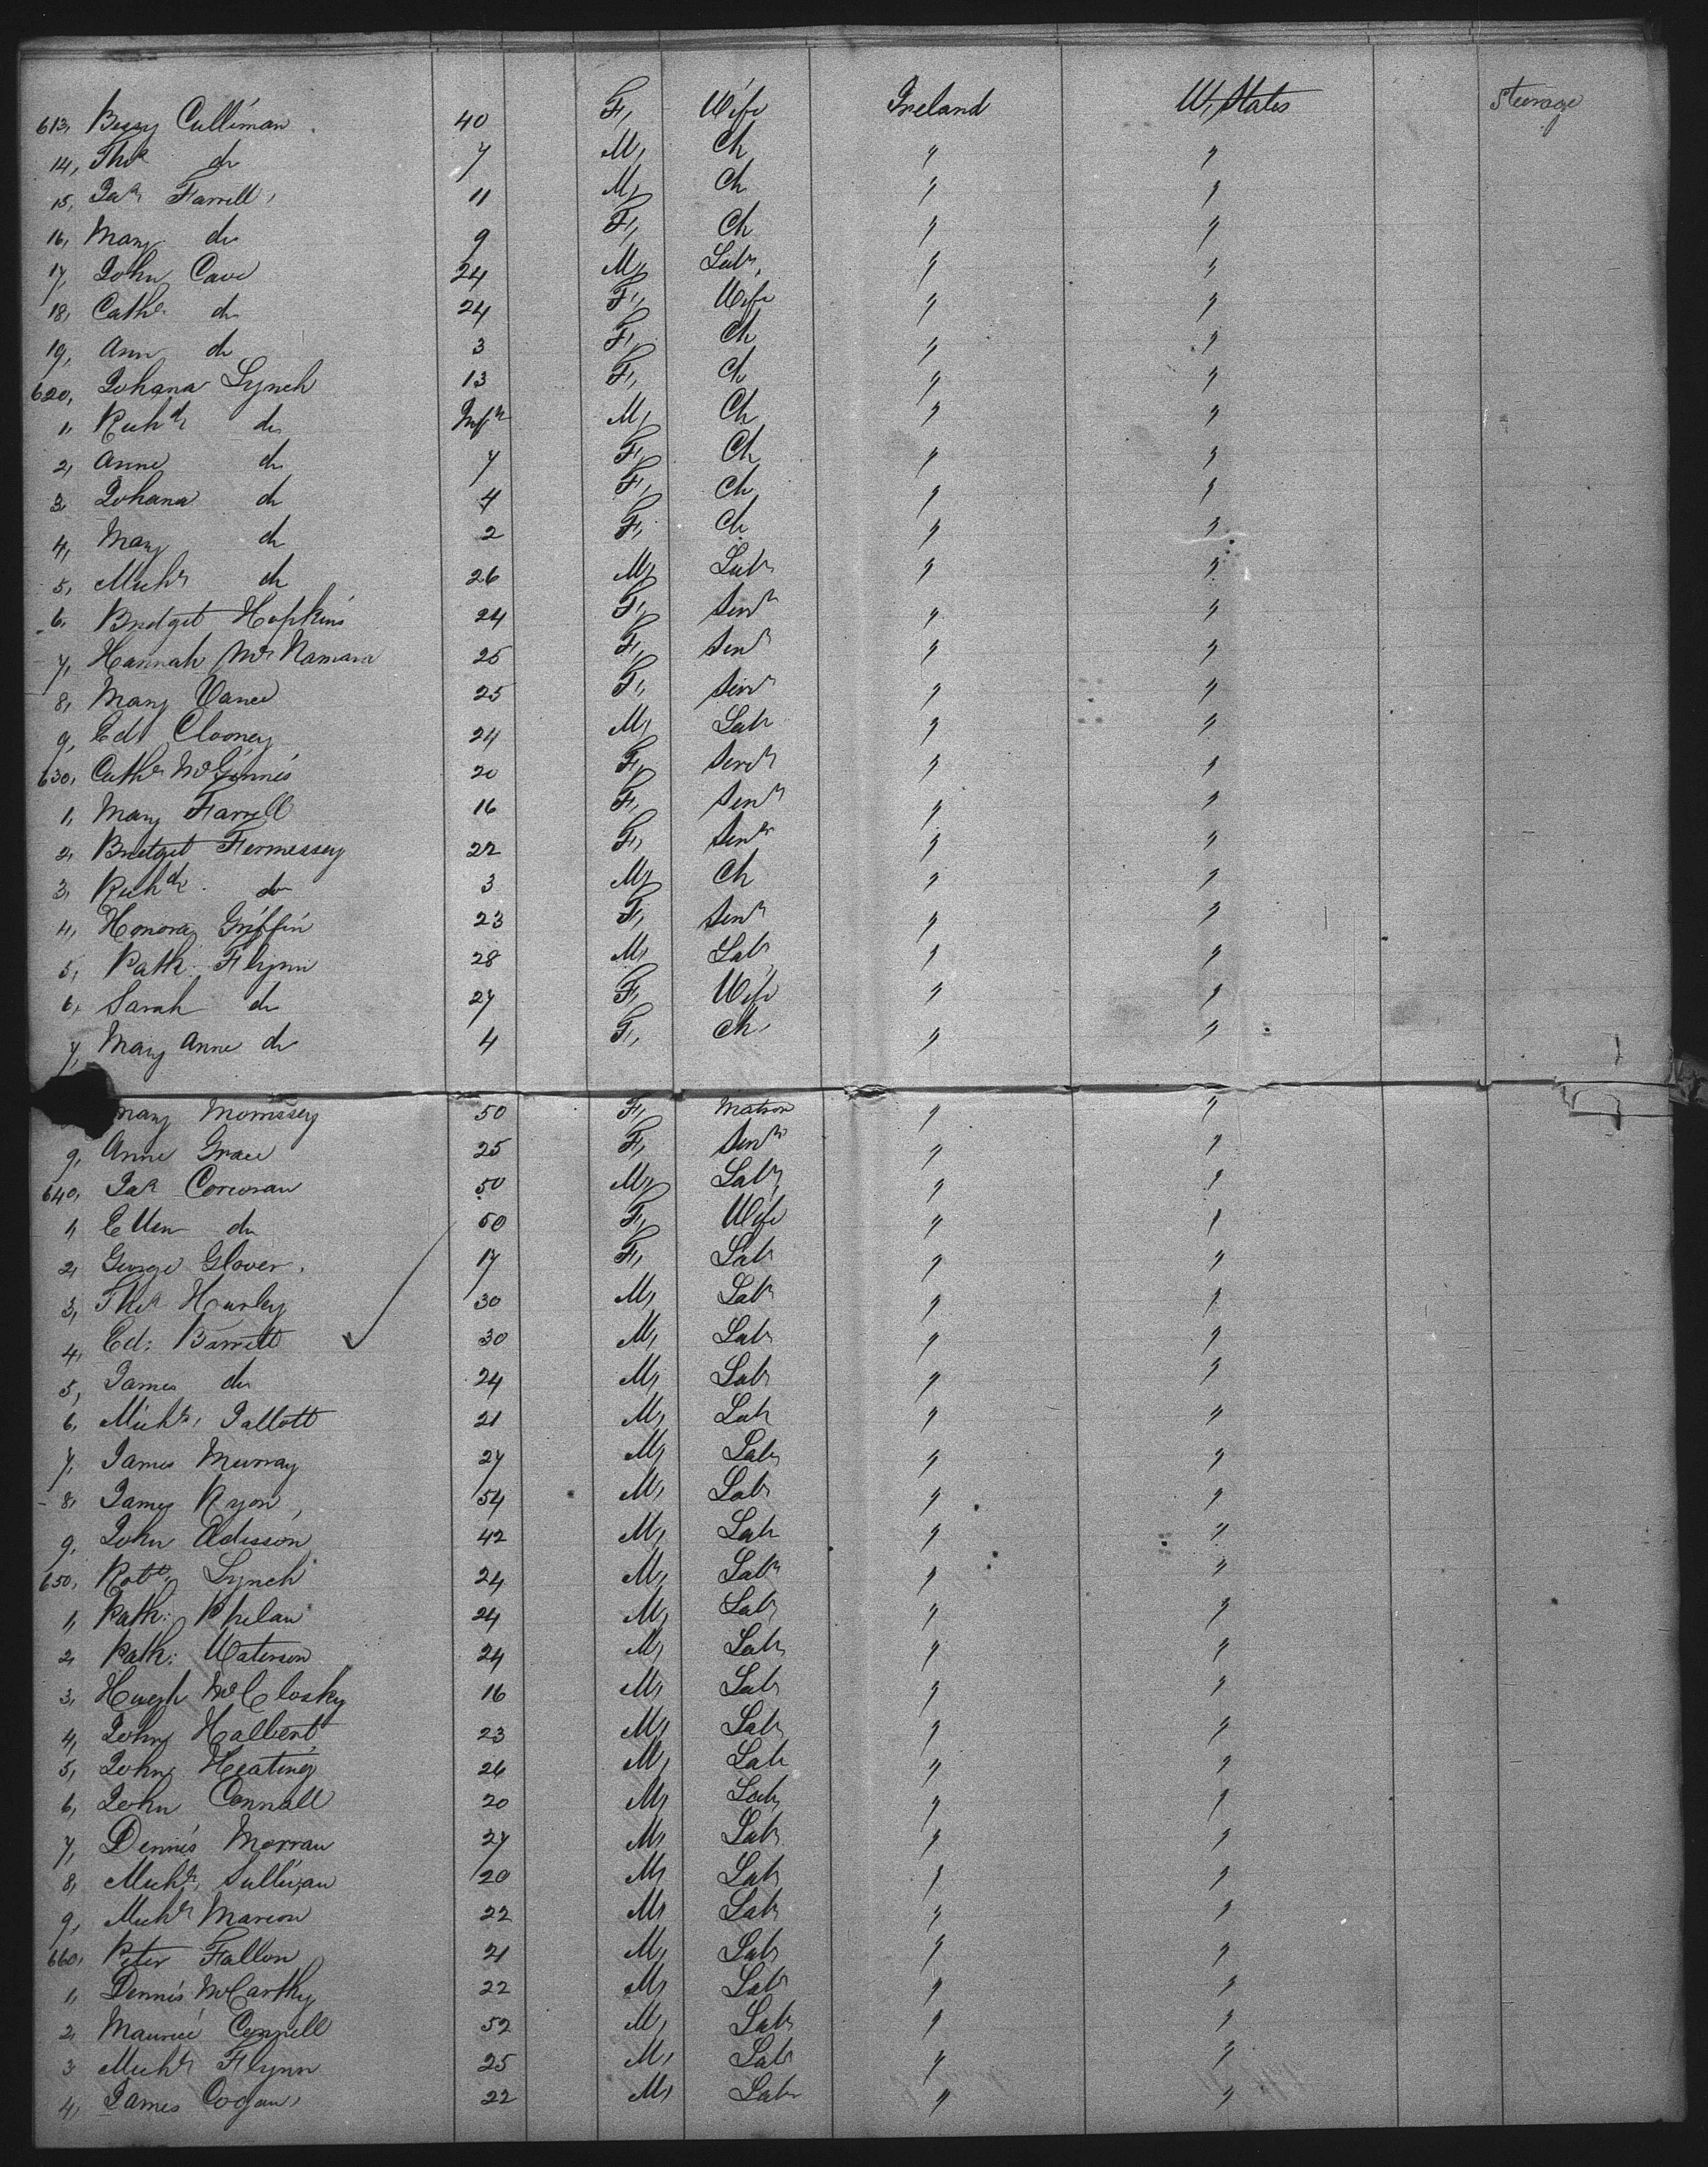 613, Bessy Culliman 40 F, Wife Ireland U, States Steerage
14, Thos do 7 M, Ch " "
15, Jas Farrell, 11 M, Ch " "
16, Mary do 9 F, Ch " "
17, John Cave 24 M, Labr " "
18, Cathe do 24 F, Wife " "
19, Ann do 3 F, Ch " "
620, Johana Lynch 13 F, Ch " "
1, Richd do Inft M, Ch " "
2, Anne do 7 F, Ch " "
3, Johana do 4 F, Ch " "
4, Mary do 2 F, Ch " "
5, Michl do 26 M, Labr " "
6, Bridget Hopkins 24 F, Servt " "
7, Hannah McNamara 25 F, Servt " "
8, Mary Vance 25 F, Servt " "
9, Ed Clooney 24 M, Labr " "
630, Cathe McGinnis 20 F, Servt " "
1, Mary Farrell 16 F, Servt " "
2, Bridget Fermessey 22 F, Servt " "
3, Richd do 3 M, Ch " "
4, Honora Griffin 23 F, Servt " "
5, Path: Flynn 28 M, Labr " "
6, Sarah do 27 F, Wife " "
7, Mary Anne do 4 F, Ch, " "
Mary Morrissey 50 F, Matron " "
9, Anne Grace 25 F, Servt " "
640, Jas Corcoran 50 M, Labr " "
1, Ellen do 50 F, Wife " "
2, George Glover 17 F, Labr " "
3, Thos Hurley 30 M, Labr " "
4, Ed: Barrett 30 M, Labr " "
5, James do 24 M, Labr " "
6, Michl, Jallott 21 M, Labr " "
7, James Murray 27 M, Labr " "
8, James Ryon, 54 M, Labr " "
9, John Adisson 42 M, Labr " "
650, Robt, Lynch 24 M, Labr " "
1, Path: Phelan 24 M, Labr " "
2, Path: Waterson 24 M, Labr " "
3, Hugh McClosky 16 M, Labr " "
4, John Halbert 23 M, Labr " "
5, John Heating 26 M, Labr " "
6, John Connall 20 M, Labr " "
7, Dennis Morran 27 M, Labr " "
8, Michl, Sullivan 20 M, Labr " "
9, Michl Marion 22 M, Labr " "
660, Peter Fallon 21 M, Labr " "
1, Dennis McCarthy 22 M, Labr " "
2, Maurice Connell 52 M, Labr " "
3 Michl Flynn 25 M, Labr " "
4, James Cogan, 22 M, Labr " "